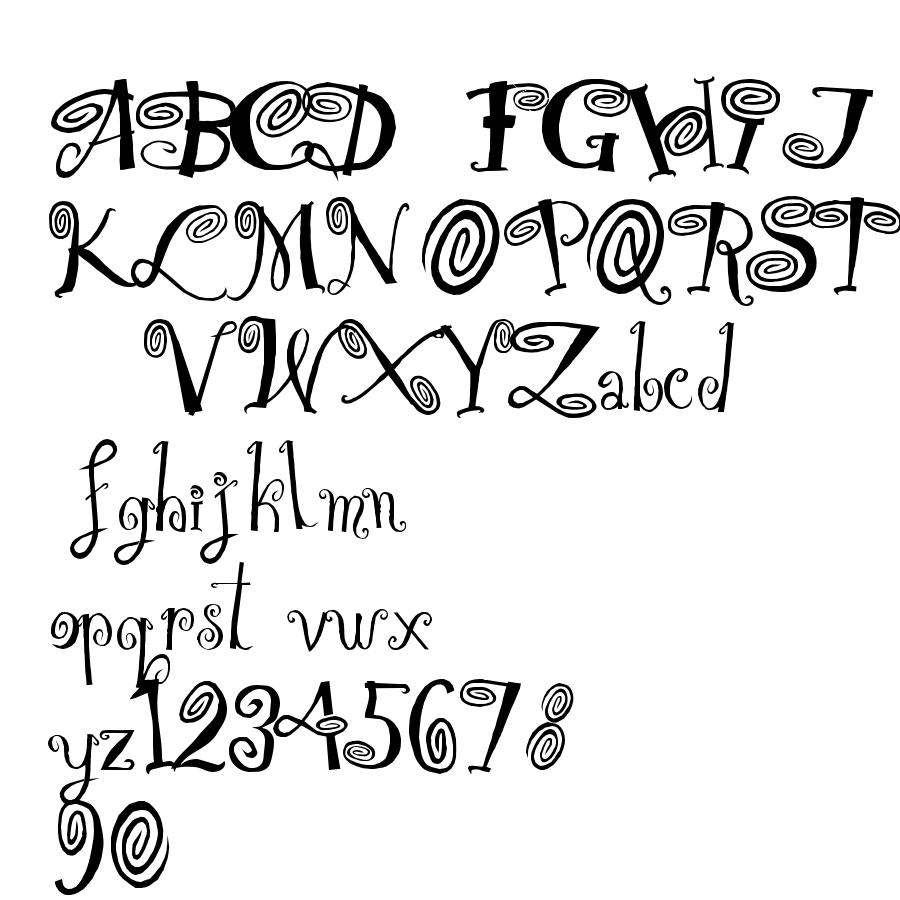 ABCD FGHIJ
KLMNOPQRST
VWXYZabcd
fghijklmn
opqrst vwx
yz12345678
90